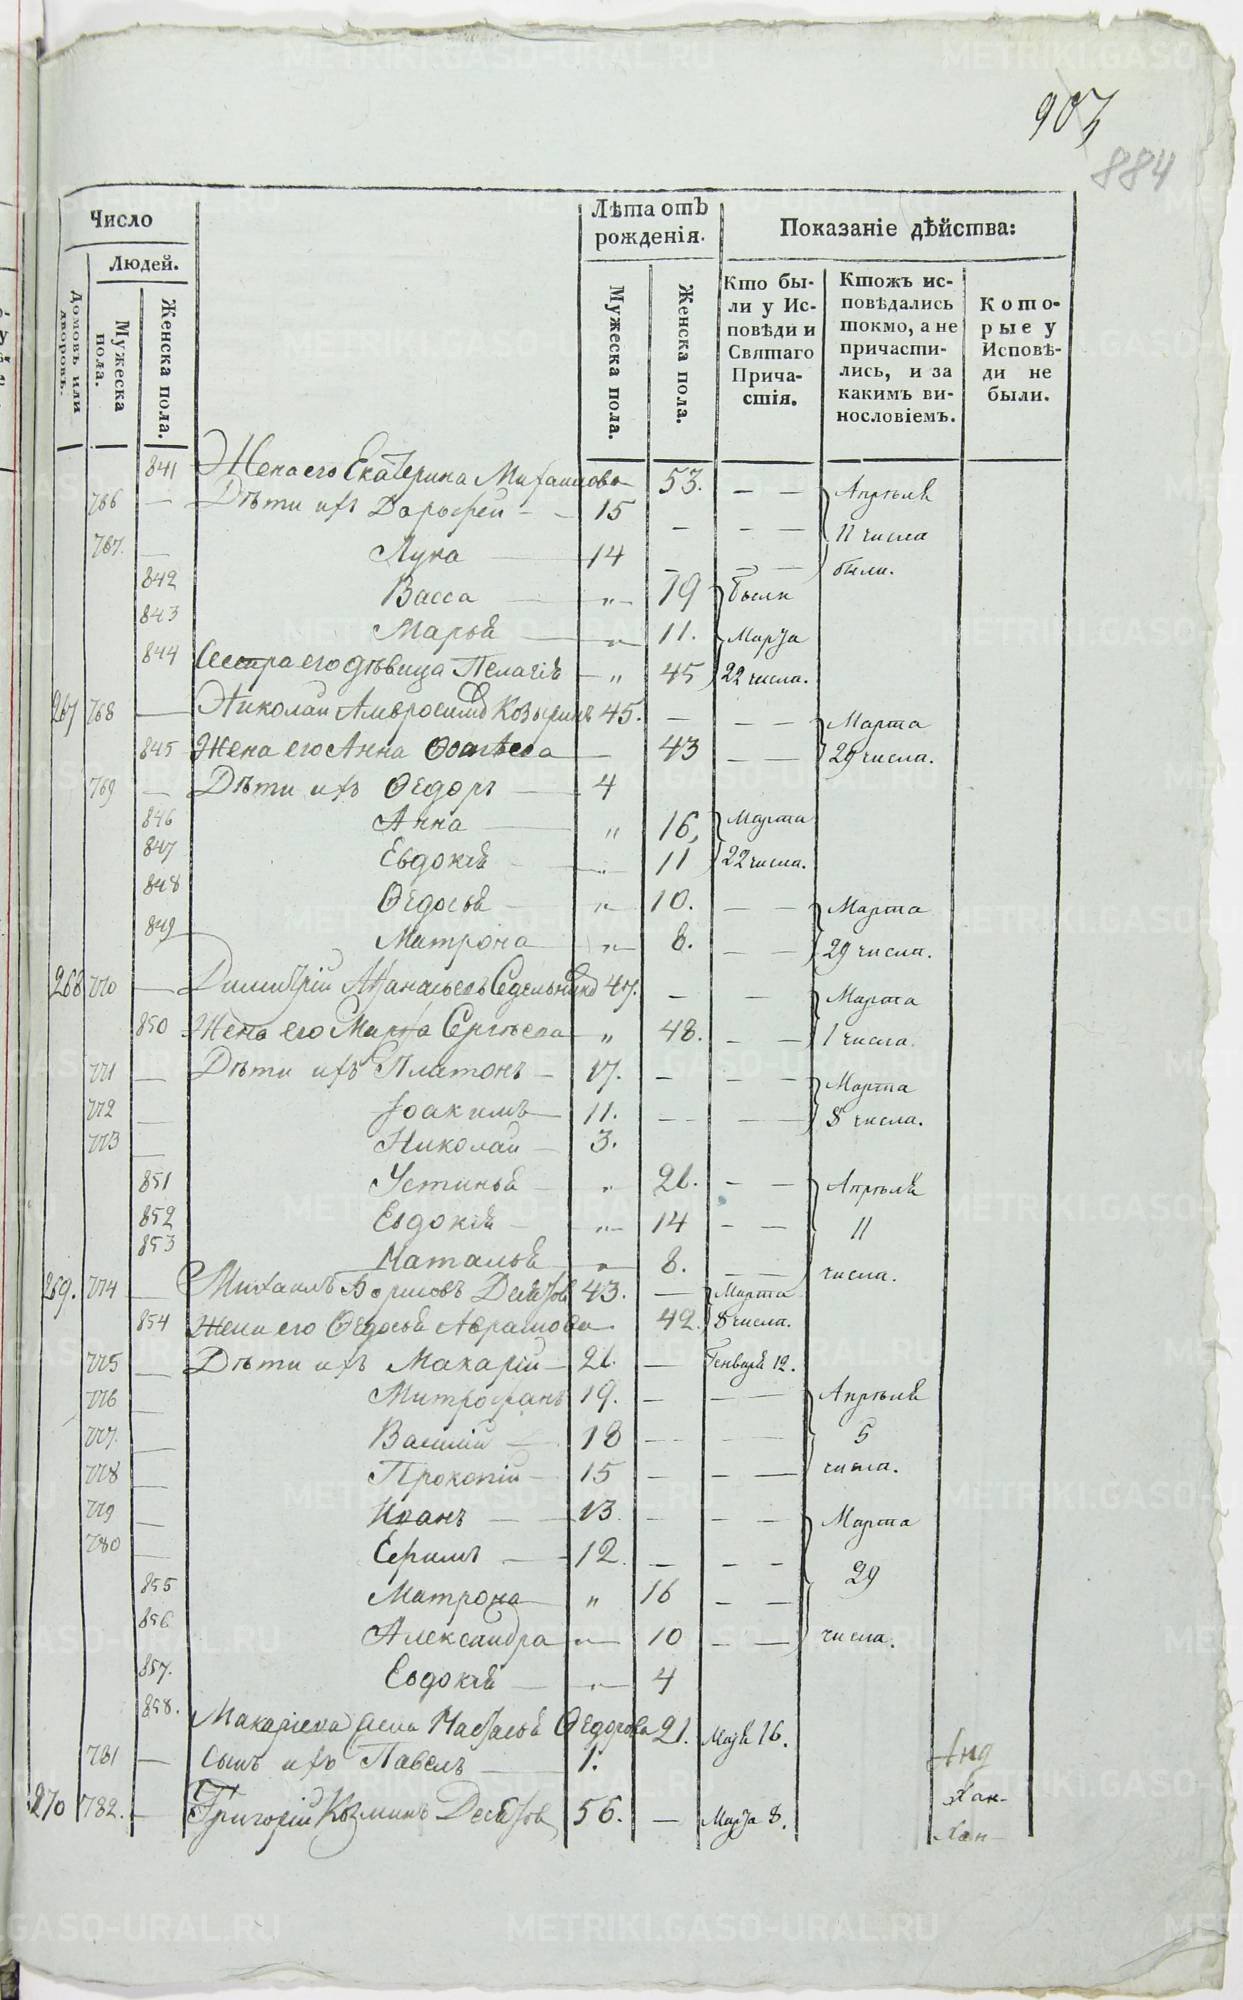 903
884
Число
Людей.
Домовъ или дворовъ.
Мужеска пола.
Женска пола.
Лѣта отъ рожденія.
Мужеска пола.
Женска пола.
Показаніе дѣйства:
Кто бы-
ли у Ис-
повѣди и
Святаго
Прича-
стія.
Ктожъ ис-
повѣдались
токмо, а не
причасти-
лись, и за
какимъ ви-
нословіемъ.
Кото-
рые у
Исповѣ-
ди не
были.
841 Жена его Екатерина Михаилова 53. — — Апрѣля
766 — Дѣти ихъ Дорофей — 15 — — — 11 числа
767. — Лука — 14 — — — были.
842 Васса — „ — 19 были
843 Марья — „ 11. Марта
844 Сестра его дѣвица Пелагія — „ 45 22 числа.
267 768 — Николай Амвросимов Козыринъ 45. — — — Марта
845 Жена его Анна — 43 — — 29 числа.
769 — Дѣти ихъ Ѳедоръ — 4
846 Анна — „ 16, Марта
847 Евдокія — „ 11 22 числа.
848 Ѳедосья — „ 10. — — Марта
849 Матрона — „ 8. — — 29 числа.
268 770 — Димитрій Аѳанасьевъ Седельников 47. — — Марта
850 Жена его Марѳа Сергѣева — „ 48. — — 1 числа.
771 — Дѣти ихъ Платонъ — 17. — — — Марта
772 — Іоакимъ — 11. — — — 8 числа.
773 — Николай — 3.
851 Устинья — „ 21. — — Апрѣля
852 Евдокія — „ 14 — — 11
853 Наталья — „ 8. — — числа.
269. 774 — Михаилъ Борисовъ Десятов 43. — Марта
854 Жена его Ѳедосья Аврамова 42. 8 числа.
775 — Дѣти ихъ Макарій — 21. — Генваря 12.
776 — Митрофанъ 19. — — — Апрѣля
777. — Василій — 18 — — — 5
778 — Прокопій — 15 — — — числа.
779 — Иванъ — 13. — — — Марта
780 — Ефимъ — 12. — — — 29
855 Матрона „ 16 — —
856 Александра „ 10 — — числа.
857. Евдокія — „ 4
858. Макарьева жена Наталья Ѳедорова 21. Маія 16.
781 — Сынъ ихъ Павелъ — 1.
270 782. — Григорій Козминъ Десятов 56. — Марта 8.
METRIKI.GASO-URAL.RU